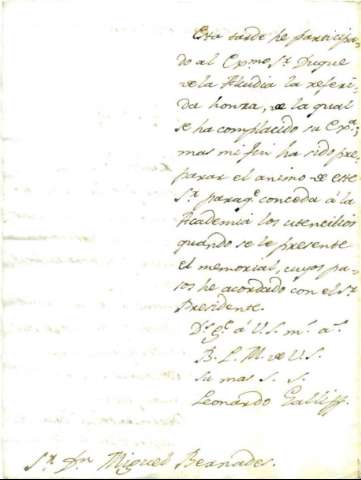 Esta tarde he participa-
do al Exmo. Sr. Duque
de la Alcudia la referi-
da honra, de la qual
se ha complacido su Exa.;
mas mi fin ha sido pre
parar el animo de este
Sr. paraqe. conceda à la
Academia los utencilios
quando se le presente
el memorial, cuyos pa-
sos he acordado con el Sr.
Presidente.
Ds. ge. à V.S. ms. as.
B. L. M. de V.S.
su mas S. S.
Leonardo Galli
Sr. Dn. Miguel Bernades.